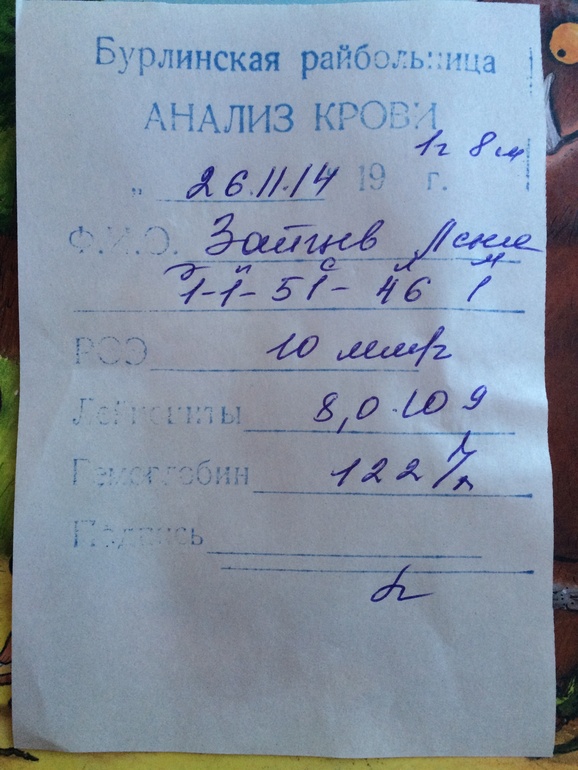 Бурлинская райбольница
АНАЛИЗ КРОВИ
1 г 8 м
„ 26.11.14 19 г.
Ф.И.О. Зайцев
э п с л м
1-1-51-46 1
РОЭ 10 мм/г
Лейкоциты 8,0·10 9
Гемоглобин 122 г/л
Подпись